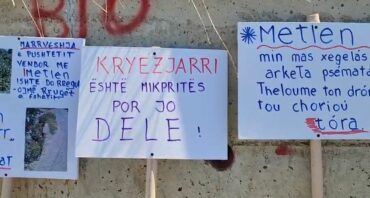 MARRVESHJA
E PUSHTETIT
VENDOR ME
METLEN
ISHTE DO RREGU
RRUGËT
KRYEZJARRI
ËSHTË MIKPRITËS
POR JO
DELE!
*Metlen
min mas xegelás
arketa psémata
Theloume ton dró
tou choriou
tóra.